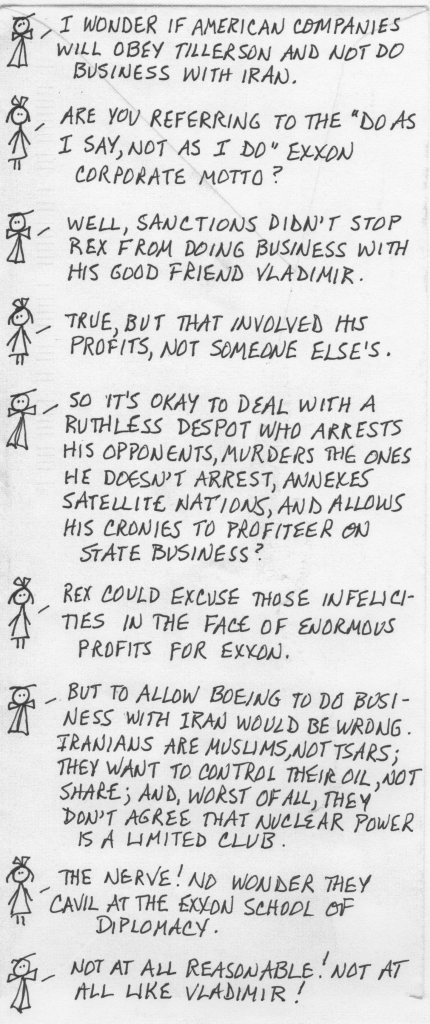 I WONDER IF AMERICAN COMPANIES
WILL OBEY TILLERSON AND NOT DO
BUSINESS WITH IRAN.
ARE YOU REFERRING TO THE "DO AS
I SAY, NOT AS I DO" EXXON
CORPORATE MOTTO?
WELL, SANCTIONS DIDN'T STOP
REX FROM DOING BUSINESS WITH
HIS GOOD FRIEND VLADIMIR.
TRUE, BUT THAT INVOLVED HIS
PROFITS, NOT SOMEONE ELSE'S.
SO IT'S OKAY TO DEAL WITH A
RUTHLESS DESPOT WHO ARRESTS
HIS OPPONENTS, MURDERS THE ONES
HE DOESN'T ARREST, ANNEXES
SATELLITE NATIONS, AND ALLOWS
HIS CRONIES TO PROFITEER ON
STATE BUSINESS?
REX COULD EXCUSE THOSE INFELICI-
TIES IN THE FACE OF ENORMOUS
PROFITS FOR EXXON.
BUT TO ALLOW BOEING TO DO BUSI-
NESS WITH IRAN WOULD BE WRONG.
IRANIANS ARE MUSLIMS, NOT TSARS;
THEY WANT TO CONTROL THEIR OIL, NOT
SHARE; AND, WORST OF ALL, THEY
DON'T AGREE THAT NUCLEAR POWER
IS A LIMITED CLUB.
THE NERVE! NO WONDER THEY
CAVIL AT THE EXXON SCHOOL OF
DIPLOMACY.
NOT AT ALL REASONABLE! NOT AT
ALL LIKE VLADIMIR!